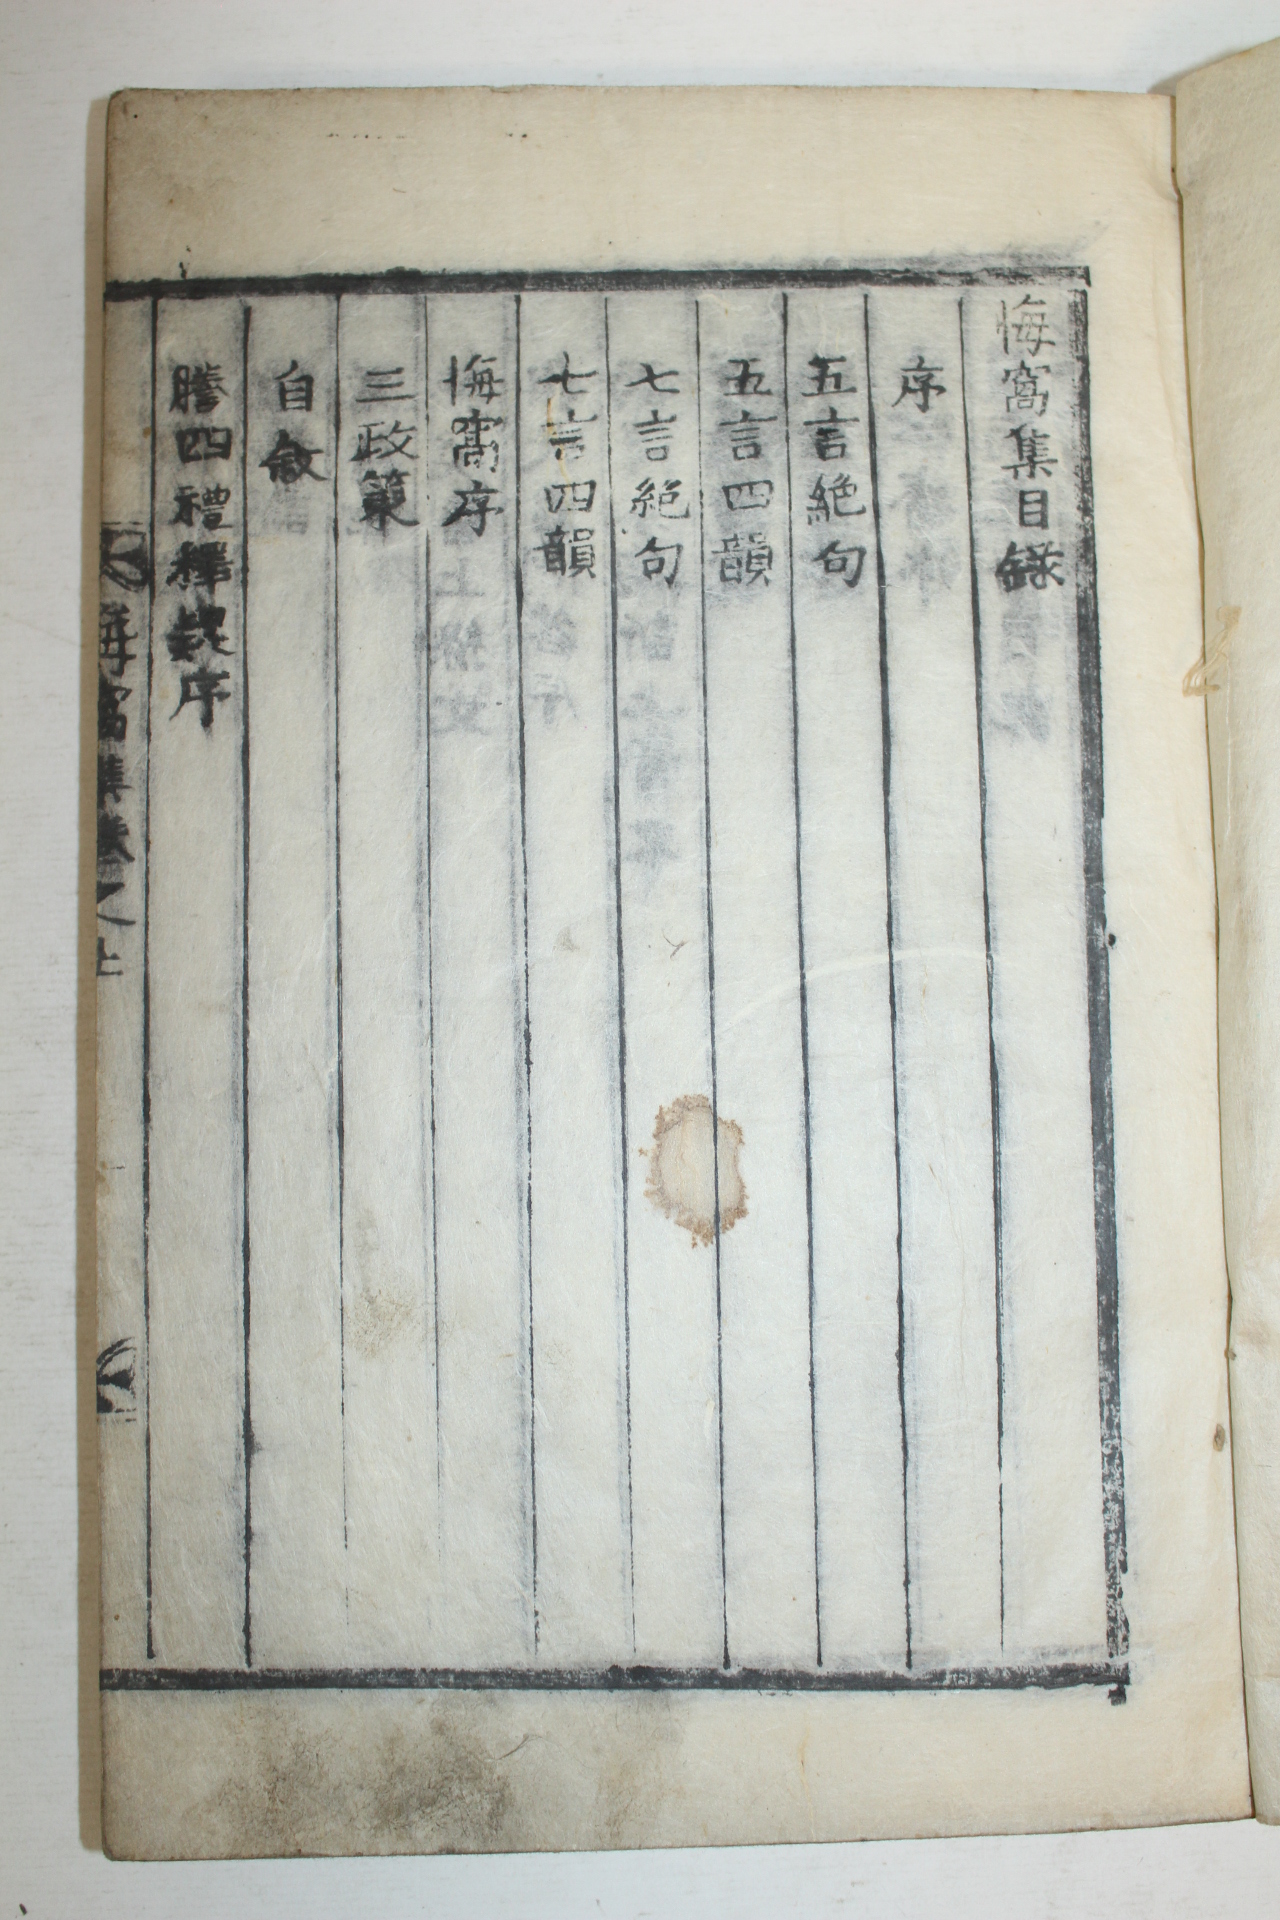 悔窩集目錄
序
五言絶句
五言四韻
七言絶句
七言四韻
悔窩序
三政策
自敘
謄四禮釋疑序
悔窩集卷之上